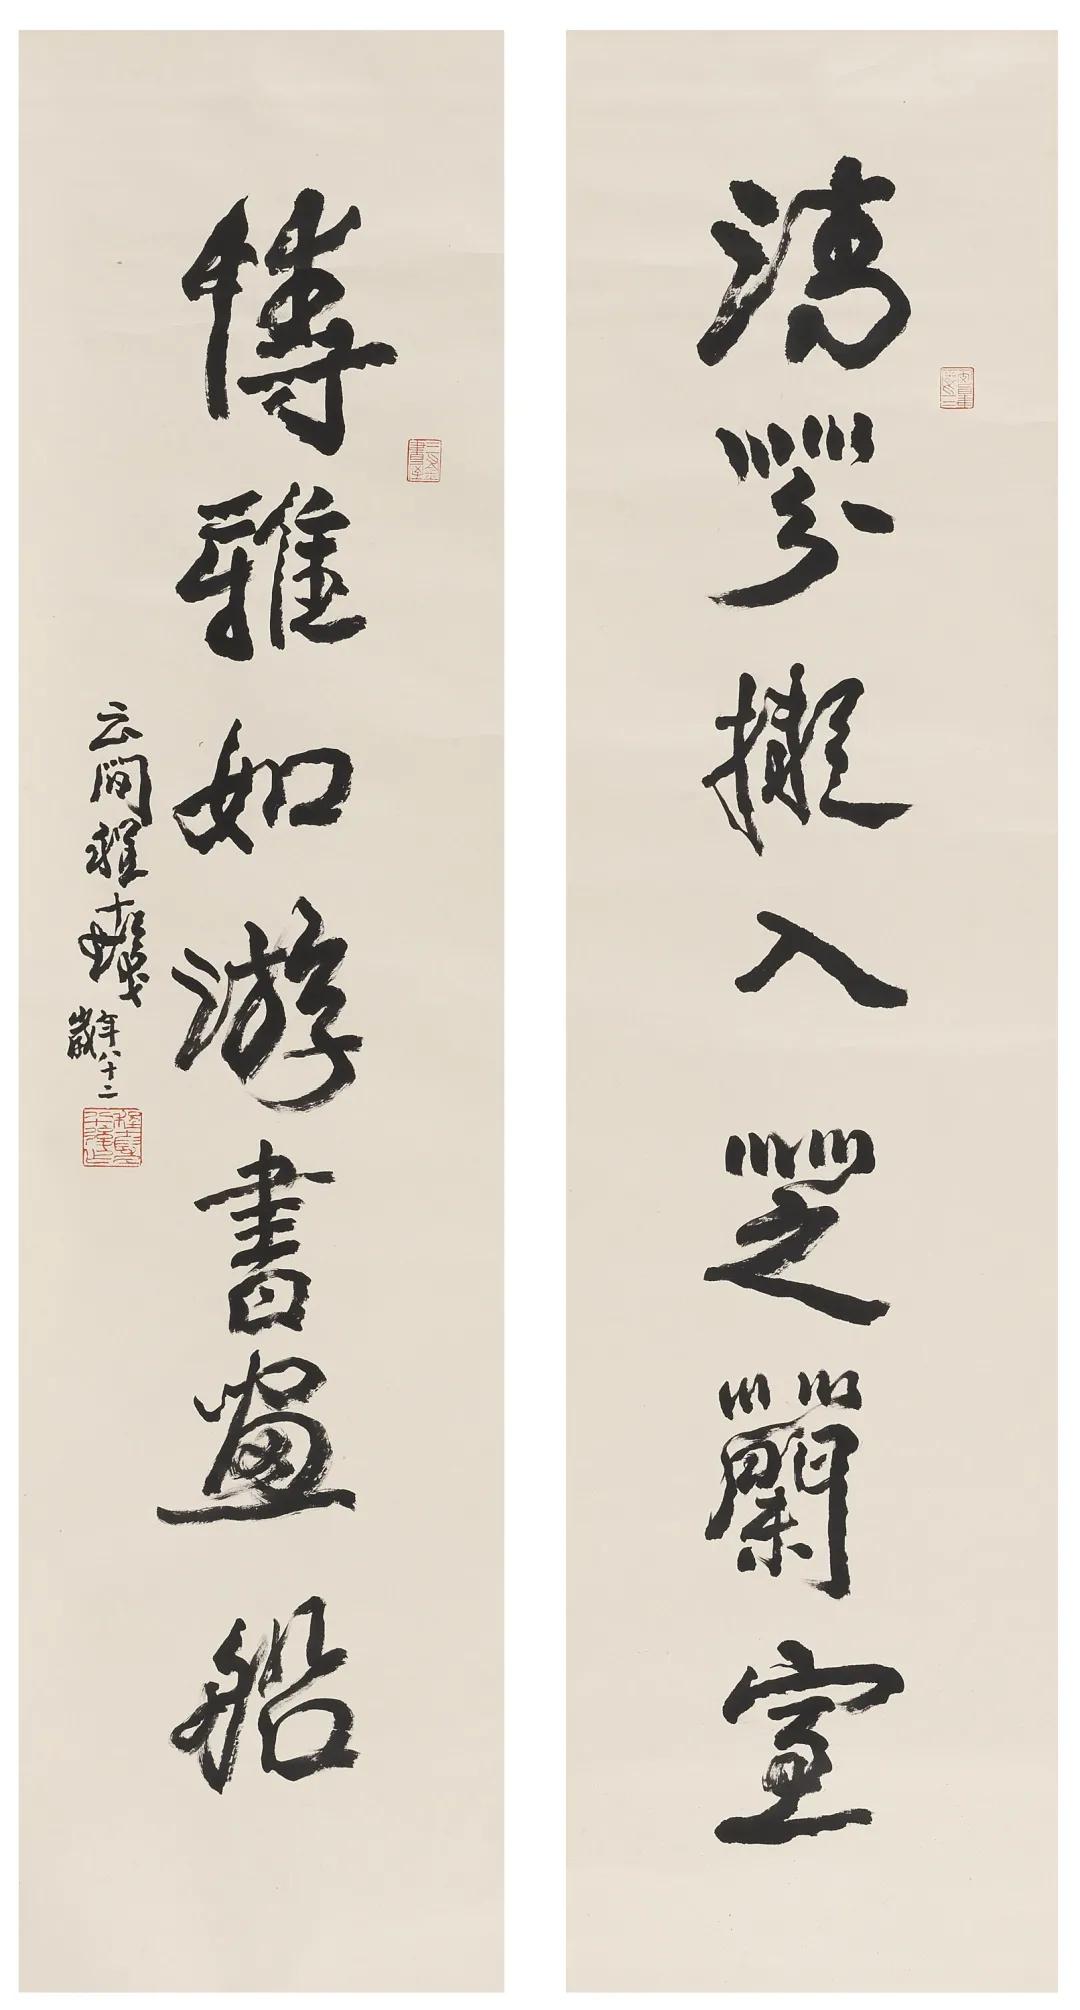 清芬擬入芝蘭室
博雅如游書畫船
云間程十髮年八十二
歲